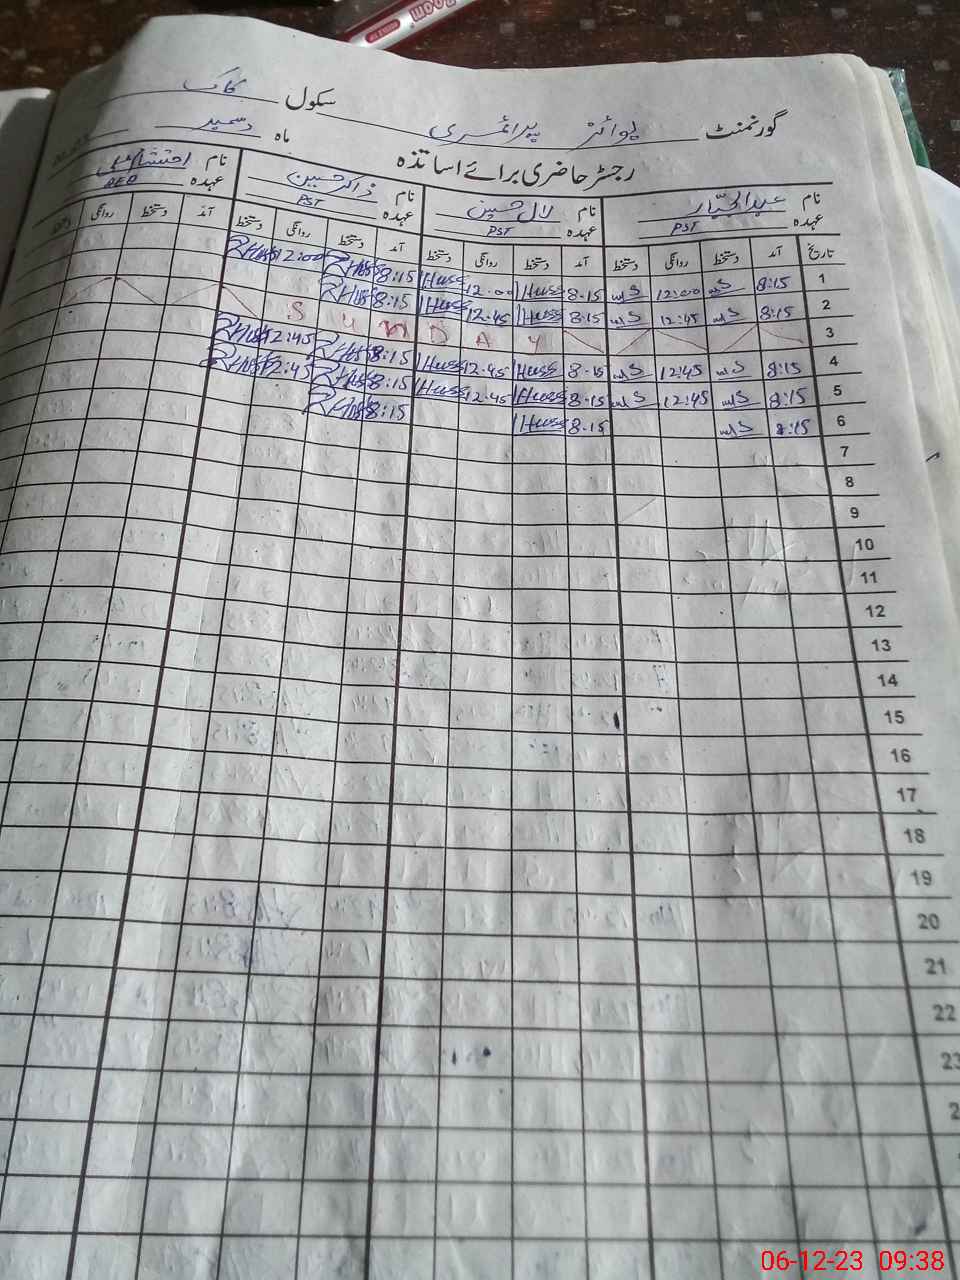 گورنمنٹ بوائز پرائمری سکول
ماہ دسمبر
رجسٹر حاضری برائے اساتذہ
نام عبدالجبار نام لال حسین نام ذاکر حسین نام
عہدہ PST عہدہ PST عہدہ PST عہدہ
تاریخ آمد دستخط روانگی دستخط آمد دستخط روانگی دستخط آمد دستخط روانگی دستخط آمد دستخط روانگی دستخط
1 8:15 12:00 8.15 Huss 12.00 Huss 8:15 RHuss 12:00 RHuss
2 8:15 12:45 8.15 Huss 12.45 Huss 8:15 RHuss
3 SUNDAY
4 8:15 12:45 8.15 Huss 12.45 Huss 8:15 RHuss 12:45 RHuss
5 8:15 12:45 8.15 Huss 12.45 Huss 8:15 RHuss 12:45 RHuss
6 8:15 8.15 Huss 8:15 RHuss
7
8
9
10
11
12
13
14
15
16
17
18
19
20
21
22
23
06-12-23 09:38